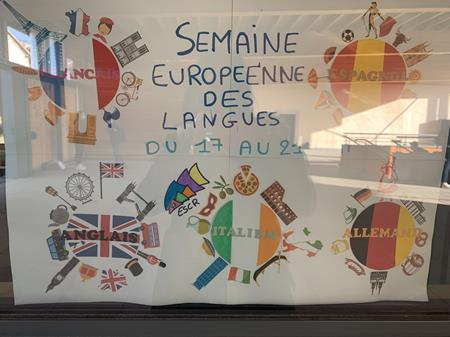 SEMAINE
EUROPEÉNNE
DES
LANGUES
DU 17 AU 21
FRANÇAIS
ESPAGNOL
ESCR
ANGLAIS
ITALIEN
ALLEMAND